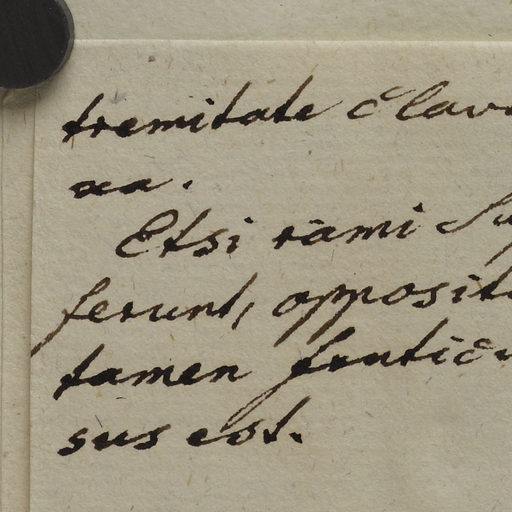 tremitate clava
xa.
Etsi rami
ferunt, opposit
tamen frutic
sus est.